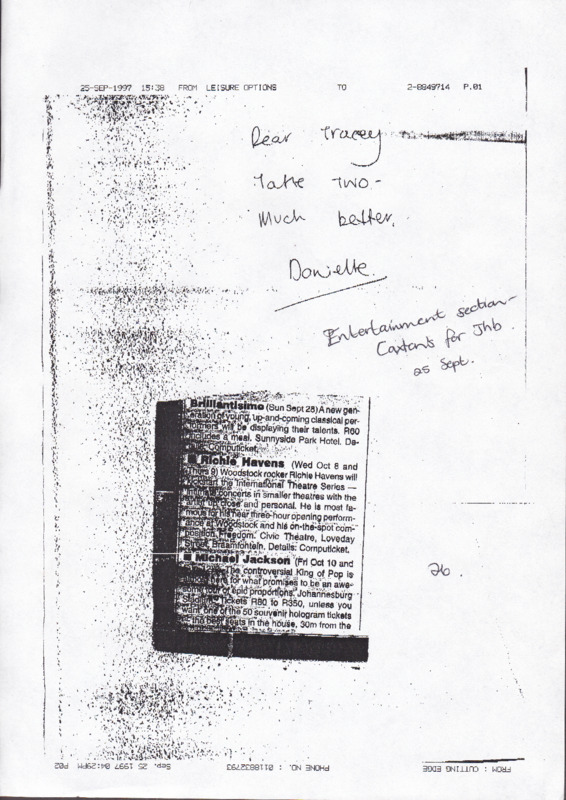 25-SEP-1997 15:38 FROM LEISURE OPTIONS TO 2-8849714 P.01
Dear Tracey
Take TWO -
Much better.
Danielle.
Entertainment section -
Caxtons for Jhb.
25 Sept.
Brilliantisimo (Sun Sept 28) A new gen-
eration of young, up-and-coming classical per-
formers will be displaying their talents. R60
includes a meal. Sunnyside Park Hotel. De-
Computicket.
■ Richie Havens (Wed Oct 8 and
Thurs 9) Woodstock rocker Richie Havens will
kickstart the International Theatre Series —
intimate concerts in smaller theatres with the
up close and personal. He is most fa-
mous for his near three-hour opening perform-
ance at Woodstock and his on-the-spot com-
position, Freedom. Civic Theatre, Loveday
Street, Braamfontein. Details: Computicket.
■ Michael Jackson (Fri Oct 10 and
The controversial King of Pop is
here for what promises to be an awe-
some tour of epic proportions. Johannesburg
Tickets R80 to R350, unless you
want one of the 50 souvenir hologram tickets
the best seats in the house, 30m from the
26.
FROM : CUTTING EDGE PHONE NO. : 0118832793 Sep. 25 1997 04:29PM P02